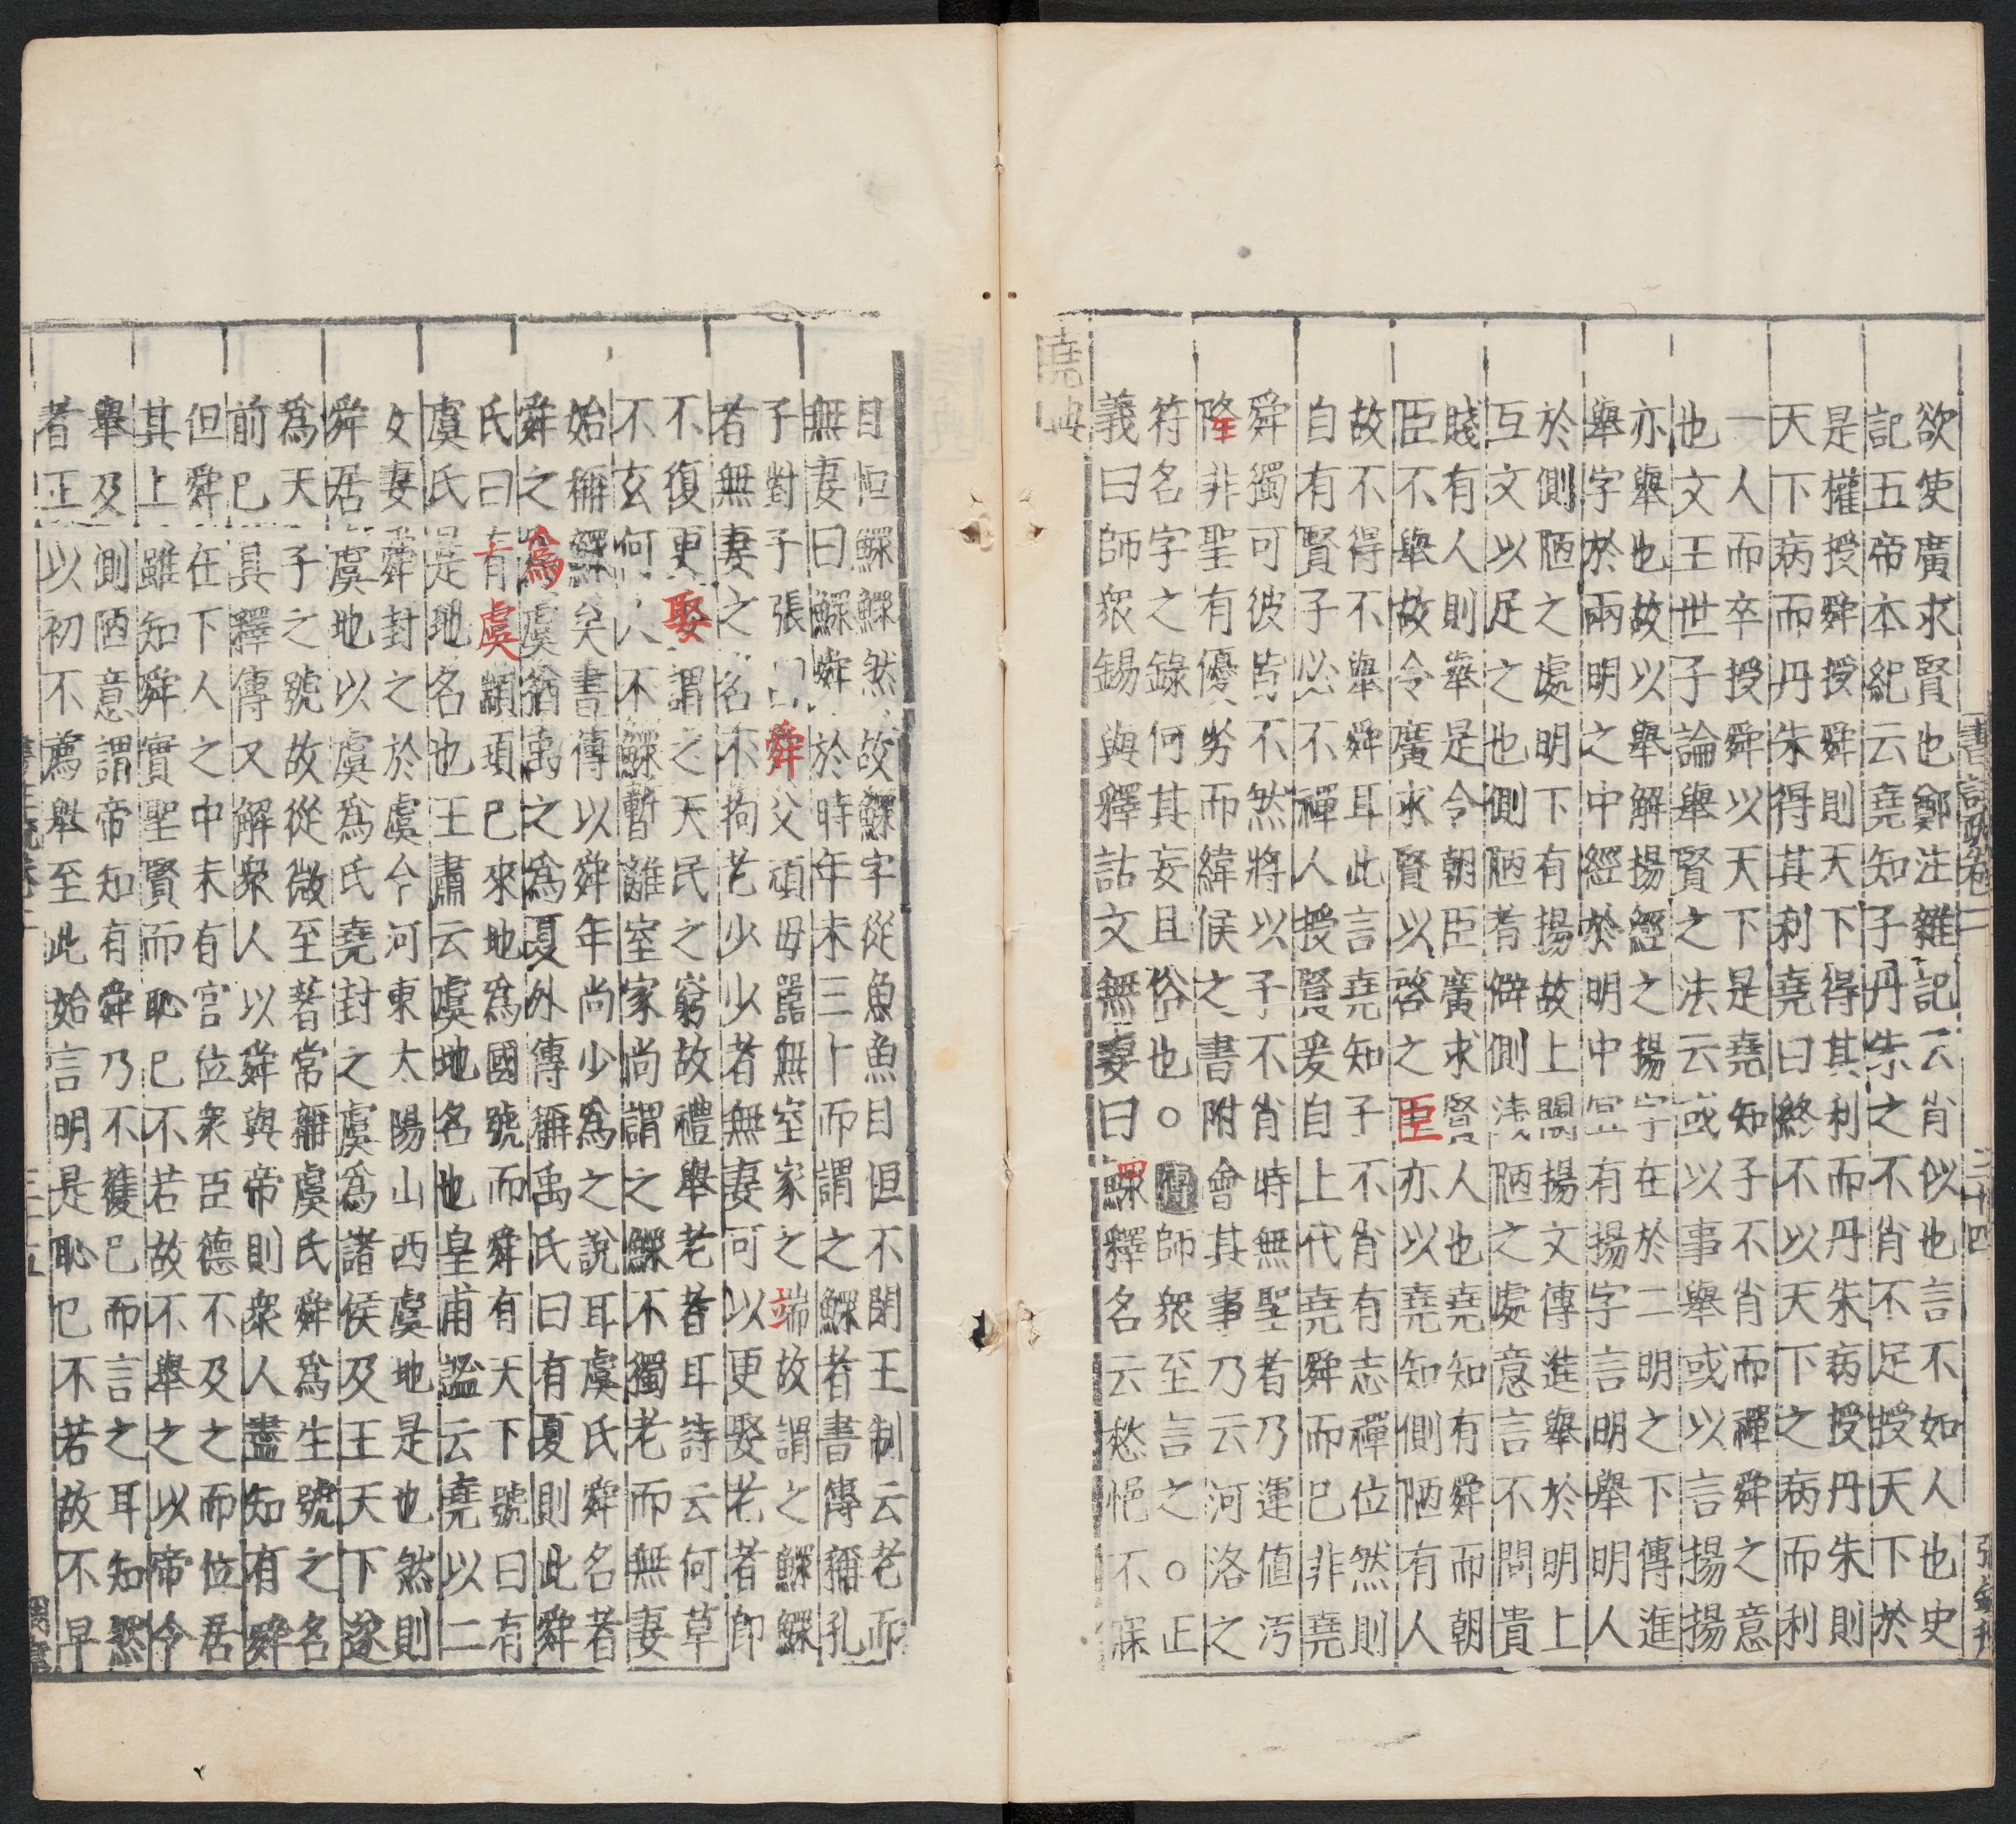 欲使廣求賢也鄭注雜記云肖似也言不如人也史
記五帝本紀云堯知子丹朱之不肖不足授天下於
是權授舜授舜則天下得其利而丹朱病授丹朱則
天下病而丹朱得其利堯曰終不以天下之病而利
一人而卒授舜以天下是堯知子不肖而禪舜之意
也文王世子論舉賢之法云或以事舉或以言揚揚
亦舉也故以舉解揚經之揚字在於二明之下傳進
舉字於兩明之中經於明中宜有揚字言明舉明人
於側陋之處明下有揚故上闕揚文傳進舉於明上
互文以足之也側陋者僻側淺陋之處意言不問貴
賤有人則舉是令朝臣廣求賢人也堯知有舜而朝
臣不舉故令廣求賢以啓之臣亦以堯知側陋有人
故不得不舉舜耳此言堯知子不肖有志禪位然則
自有賢子必不禪人授賢爰自上代堯舜而已非堯
舜獨可彼皆不然將以子不肖時無聖者乃運值汚
隆非聖有優劣而緯候之書附會其事乃云河洛之
符名字之錄何其妄且俗也○傳師衆至言之○正
義曰師衆錫與釋詁文無妻曰鰥釋名云愁悒不寐
堯典
書言疏卷二
二十四
目恒鰥鰥然故鰥字從魚魚目恒不閉王制云老而
無妻曰鰥舜於時年未三十而謂之鰥者書傳稱孔
子對子張曰舜父頑母嚚無室家之端故謂之鰥鰥
者無妻之名不拘老少少者無妻可以更娶老者即
不復更娶謂之天民之窮故禮舉老者耳詩云何草
不玄何人不鰥暫離室家尚謂之鰥不獨老而無妻
始稱鰥矣書傳以舜年尚少爲之說耳虞氏舜名者
舜之爲虞猶禹之爲夏外傳稱禹氏曰有夏則此舜
氏曰有虞顓頊已來地爲國號而舜有天下號曰有
虞氏是地名也王肅云虞地名也皇甫謐云堯以二
女妻舜封之於虞今河東太陽山西虞地是也然則
舜居虞地以虞爲氏堯封之虞爲諸侯及王天下遂
爲天子之號故從微至著常稱虞氏舜爲生號之名
前已具釋傳又解衆人以舜與帝則衆人盡知有舜
但舜在下人之中未有宫位衆臣德不及之而位居
其上雖知舜實聖賢而恥已不若故不舉之以帝令
舉及側陋意謂帝知有舜乃不獲已而言之耳知然
者正以初不薦舉至此始言明是恥已不若故不早